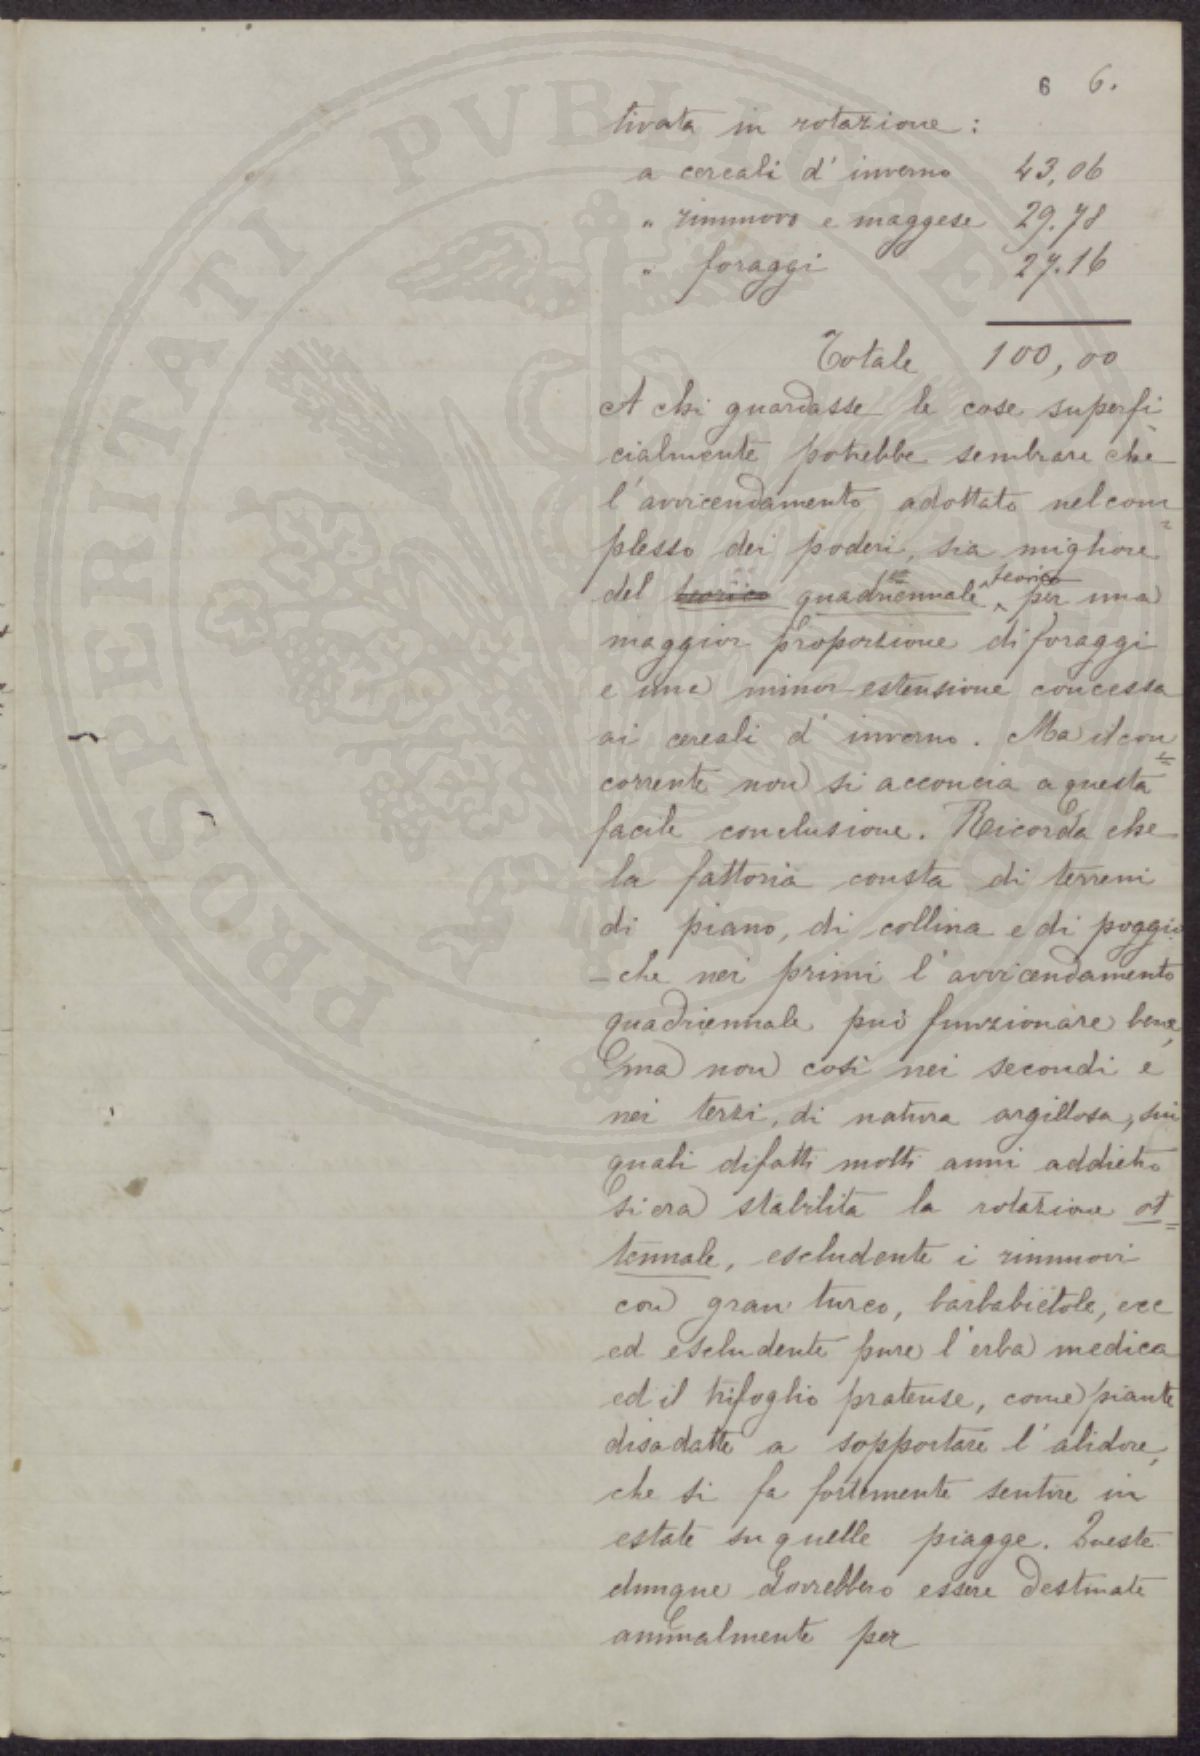 6 6.
tivata in rotazione:
a cereali d'inverno 43,06
" rinnuovo e maggese 29.78
" foraggi 27.16
Totale 100,00
A chi guardasse le cose superfi-
cialmente potrebbe sembrare che
l'avvicendamento adottato nel com=
plesso dei poderi, sia migliore
del teorico quadriennale teorico per una
maggior proporzione di foraggi
e una minor estensione concessa
ai cereali d'inverno. Ma il con=
corrente non si acconcia a questa
facile conclusione. Ricorda che
la fattoria consta di terreni
di piano, di collina e di poggio
- che nei primi l'avvicendamento
quadriennale può funzionare bene,
ma non così nei secondi e
nei terzi, di natura argillosa, sui
quali difatti molti anni addietro
si era stabilita la rotazione ot=
tennale, escludente i rinnuovi
con gran turco, barbabietole, ecc
ed escludente pure l'erba medica
ed il trifoglio pratense, come piante
disadatte a sopportare l'alidore,
che si fa fortemente sentire in
estate su quelle piagge. Queste
dunque dovrebbero essere destinate
annualmente per
PROSPERITATI PVBLICAE